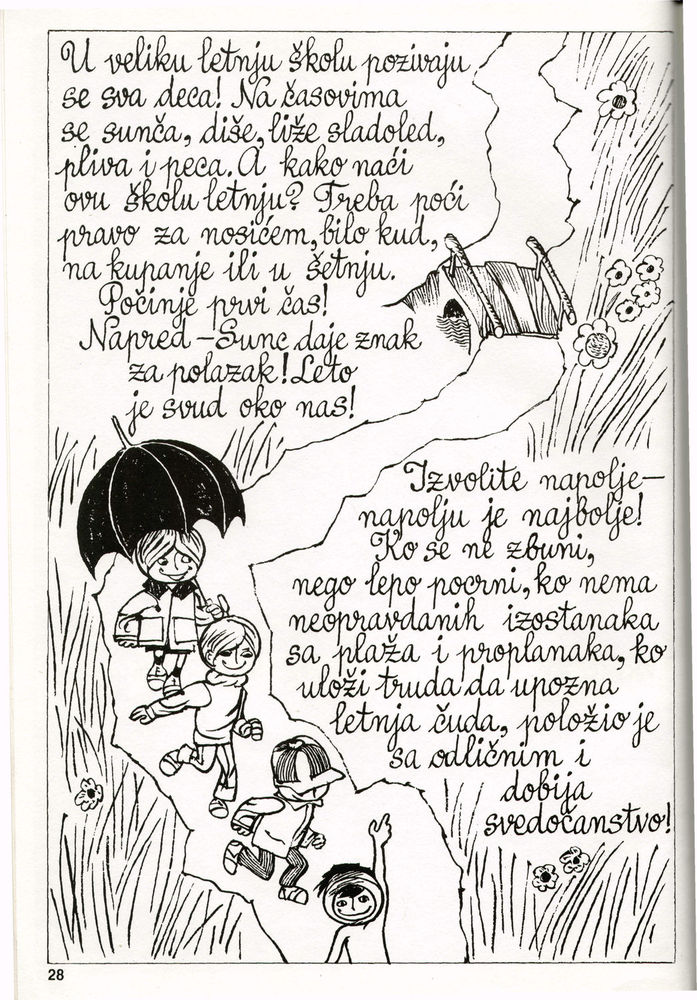 U veliku letnju školu pozivaju
se sva deca! Na časovima
se sunča, diše, liže sladoled,
pliva i peca. A kako naći
ovu školu letnju? Treba poći
pravo za nosićem, bilo kud,
na kupanje ili u šetnju.
Počinje prvi čas!
Napred – Sunc daje znak
za polazak! Leto
je svud oko nas!
Izvolite napolje –
napolju je najbolje!
Ko se ne zbuni,
nego lepo pocrni, ko nema
neopravdanih izostanaka
sa plaža i proplanaka, ko
uloži truda da upozna
letnja čuda, položio je
sa odličnim i
dobija
svedočanstvo!
28